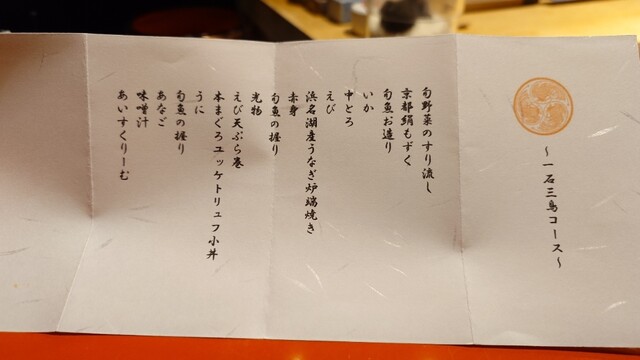 ～一石三鳥コース～
旬野菜のすり流し
京都絹もずく
旬魚お造り
いか
中とろ
えび
浜名湖産うなぎ炉端焼き
赤身
旬魚の握り
光物
えび天ぷら巻
本まぐろユッケトリュフ小丼
うに
旬魚の握り
あなご
味噌汁
あいすくりーむ